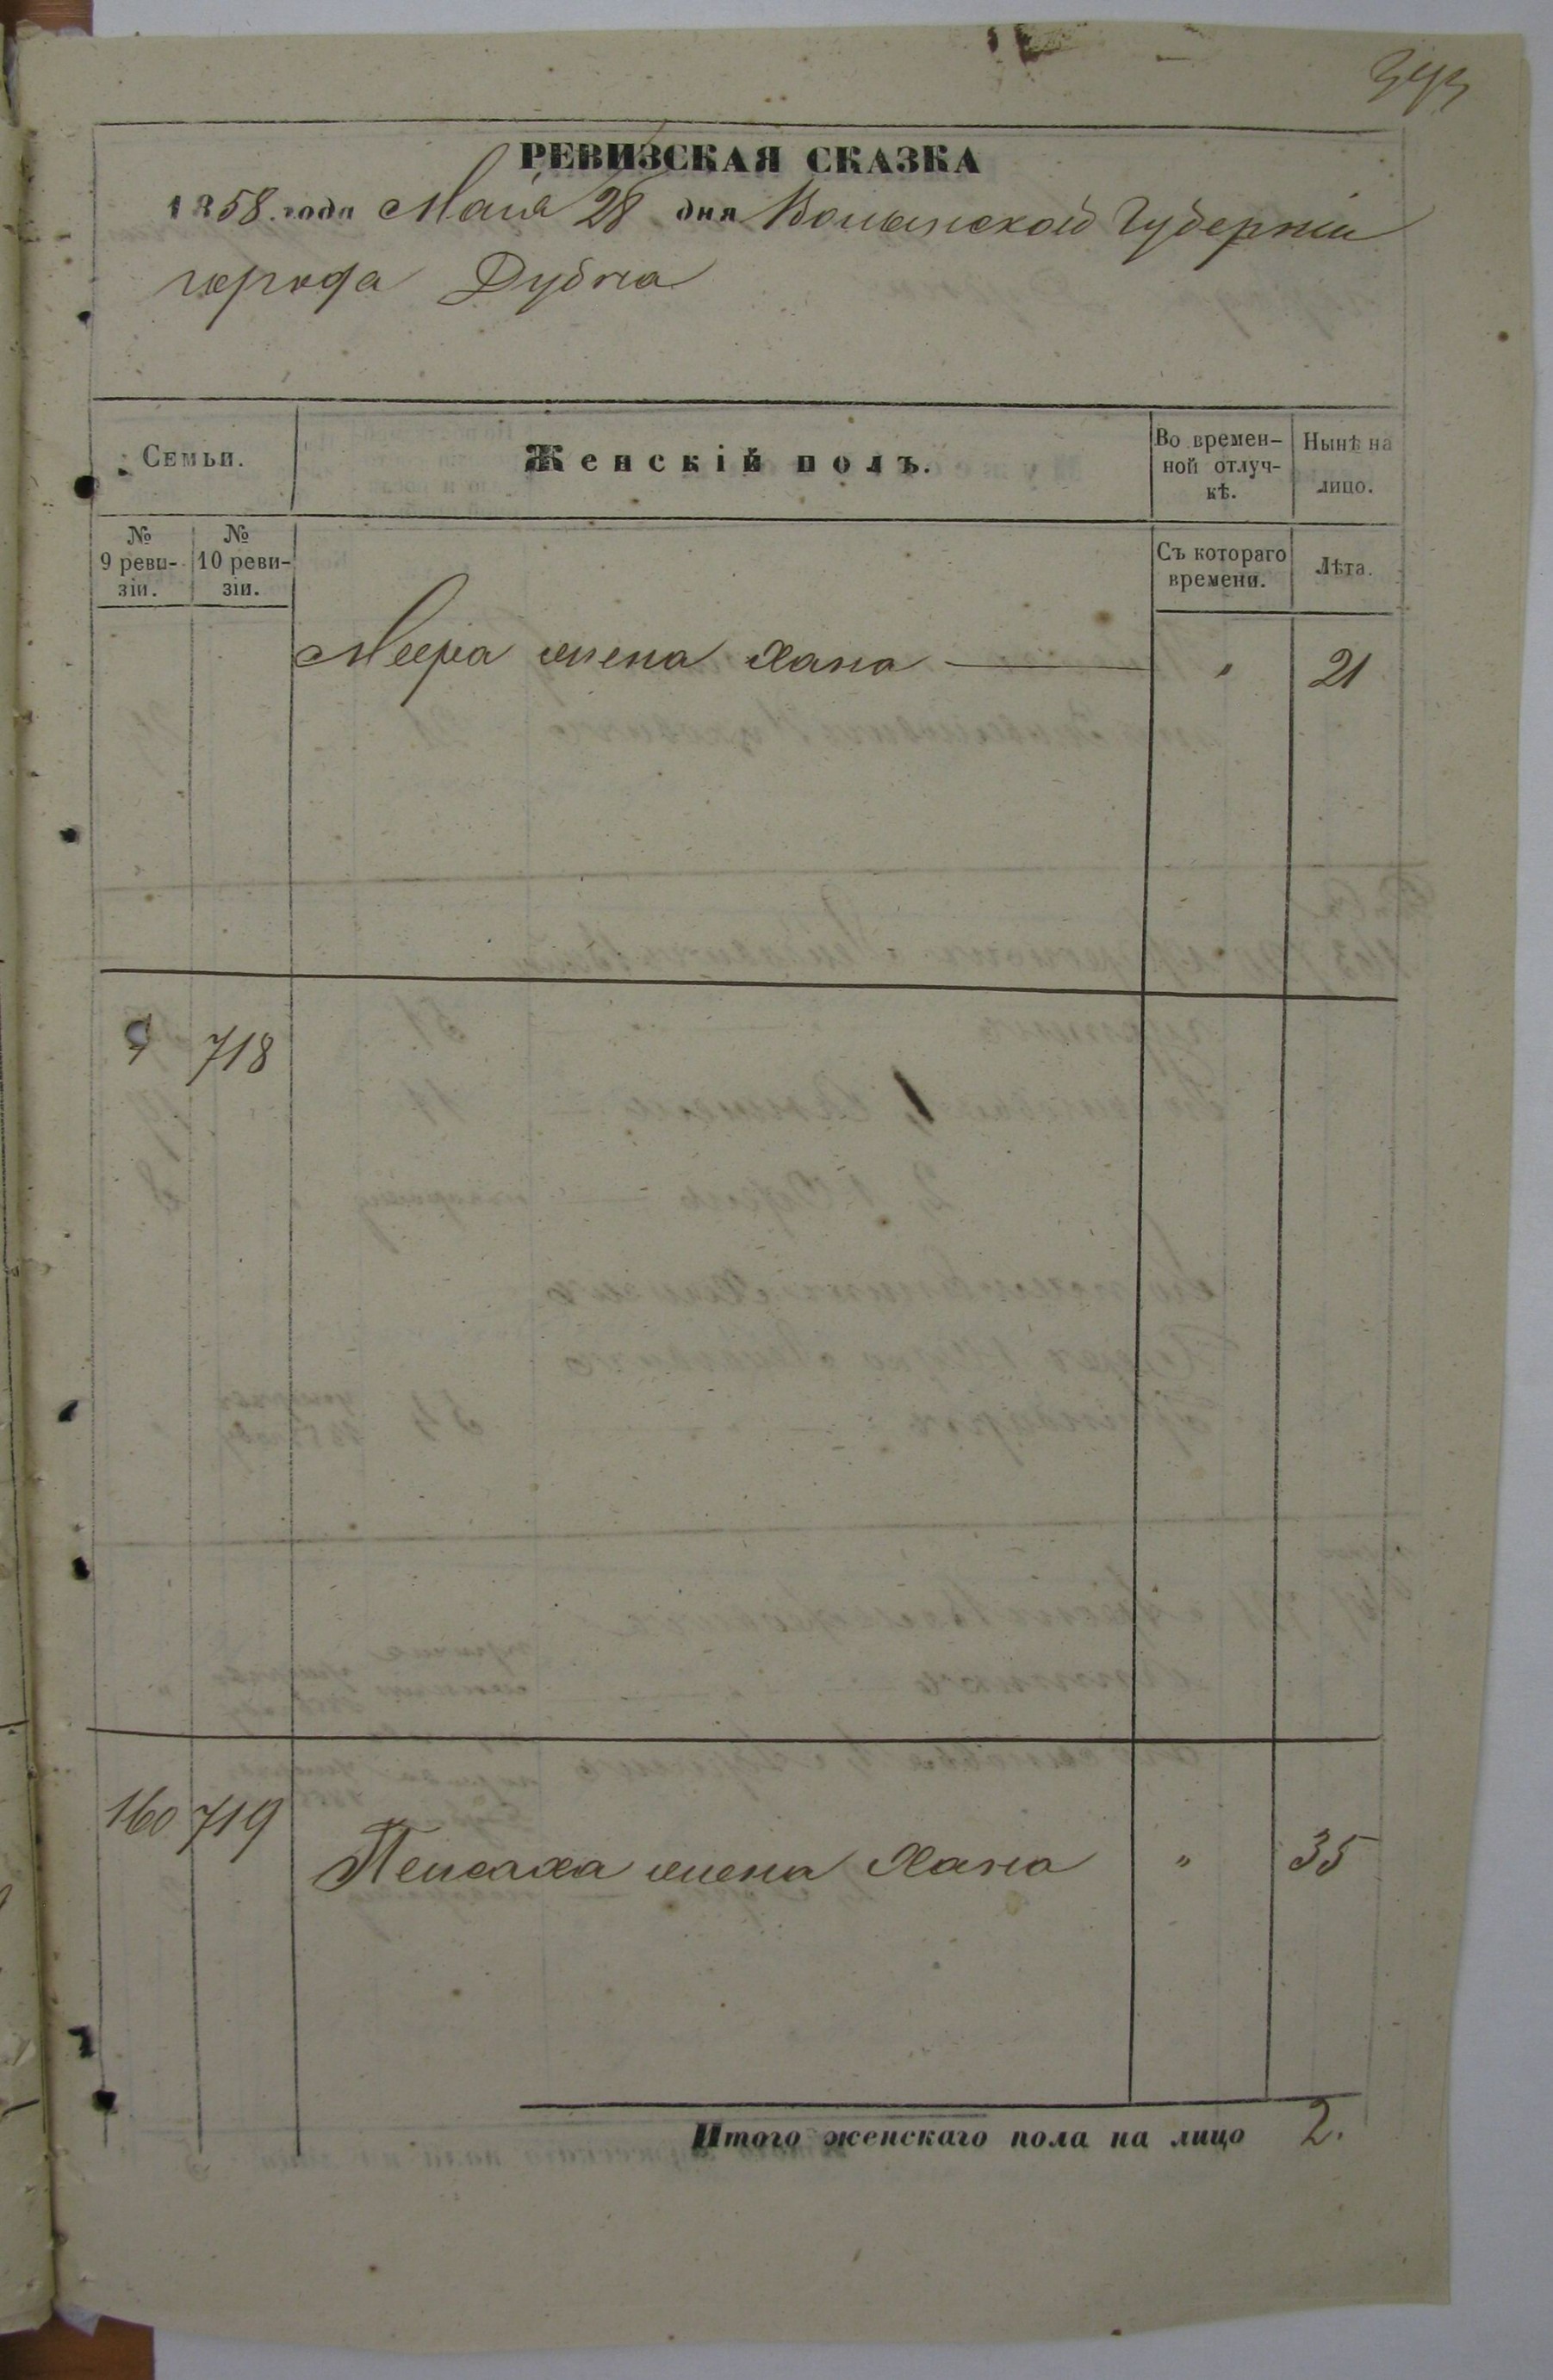 393
РЕВИЗСКАЯ СКАЗКА
1858. года Маія 28 дня Волынской Губерніи
города Дубна
Семьи.
Женскій полъ.
Во времен-
ной отлуч-
кѣ.
Нынѣ на
лицо.
№
9 реви-
зіи.
№
10 реви-
зіи.
Съ котораго
времени.
Лѣта.
Меера жена Хана — " 21
718
160 719 Пейсаха жена Хана " 35
Итого женскаго пола на лицо 2.